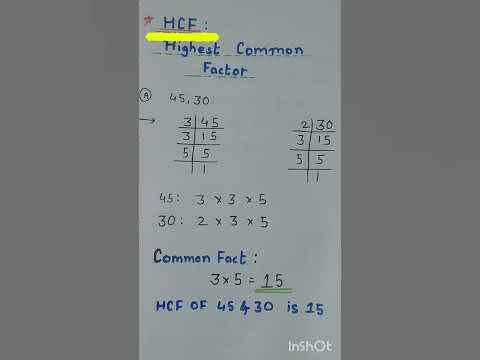 * HCF :
Highest Common
Factor
A 45, 30
→ 3 | 45
3 | 15
5 | 5
1
2 | 30
3 | 15
5 | 5
1
45 : 3 × 3 × 5
30 : 2 × 3 × 5
Common Fact :
3 × 5 = 15
HCF OF 45 & 30 is 15
InShOt